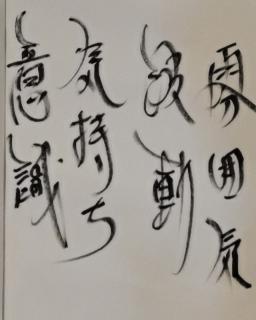 雰囲気
波動
気持ち
意識